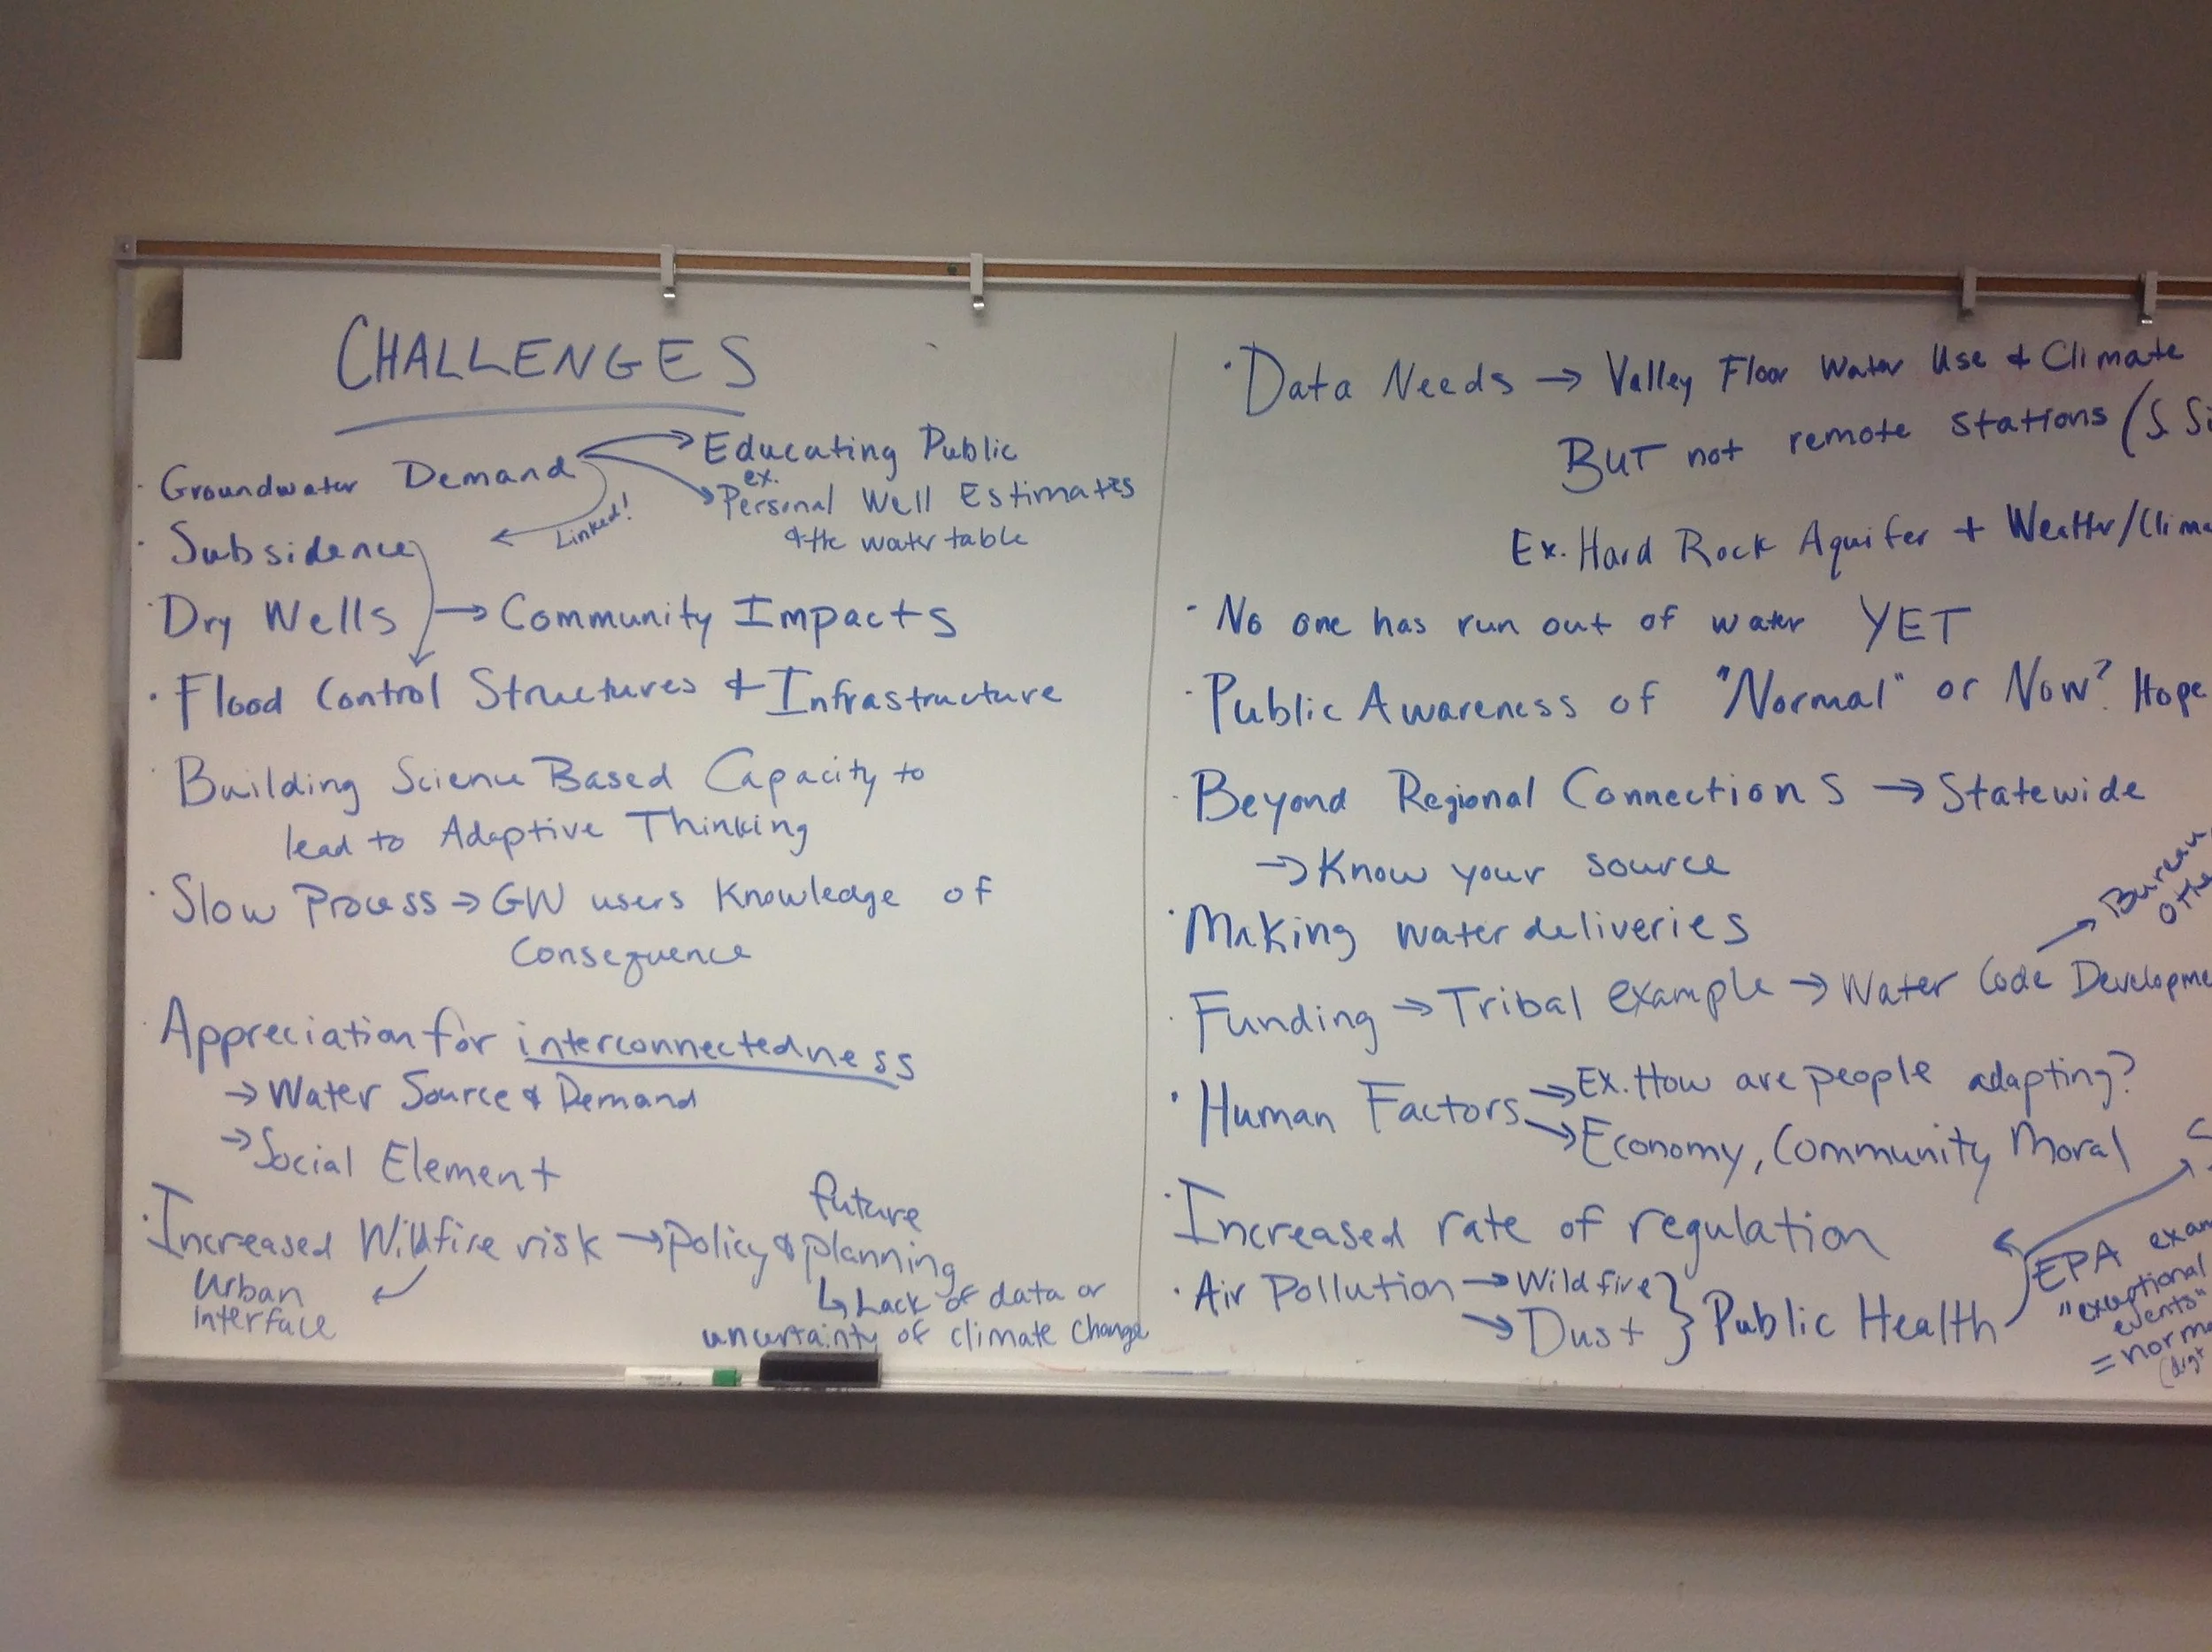 CHALLENGES
· Groundwater Demand → Educating Public
ex.
→ Personal Well Estimates
& the water table
Linked!
· Subsidence
· Dry Wells → Community Impacts
· Flood Control Structures & Infrastructure
· Building Science Based Capacity to
lead to Adaptive Thinking
· Slow Process → GW users Knowledge of
Consequence
· Appreciation for interconnectedness
→ Water Source & Demand
→ Social Element
future
· Increased Wildfire risk → Policy & planning
Urban
interface
↳ Lack of data or
uncertainty of climate change
· Data Needs → Valley Floor Water Use & Climate
BUT not remote stations (S.
Ex. Hard Rock Aquifer + Weather/
· No one has run out of water YET
· Public Awareness of "Normal" or Now? Hope
· Beyond Regional Connections → Statewide
→ Know your source
· Making water deliveries
· Funding → Tribal example → Water Code
· Human Factors → Ex. How are people adapting?
→ Economy, Community Moral
· Increased rate of regulation
· Air Pollution → Wildfire
→ Dust } Public Health
EPA
"exceptional
events"
=